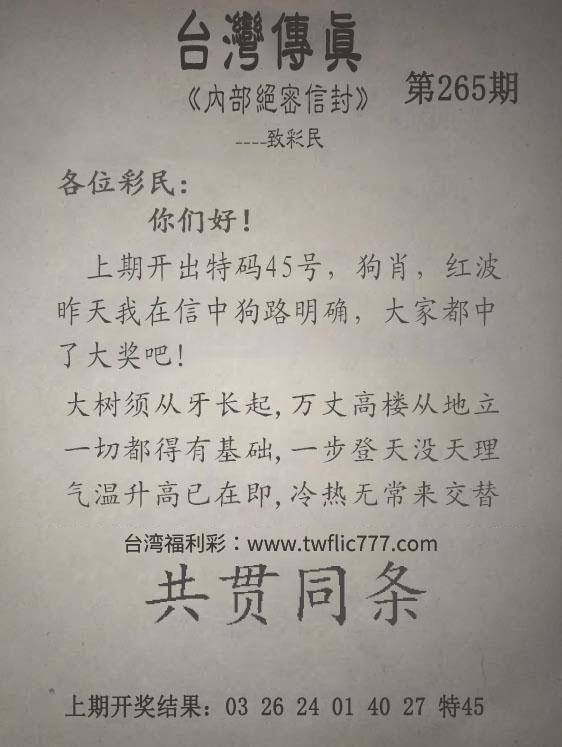 台灣傳眞
《內部絕密信封》
第265期
----致彩民
各位彩民：
你们好！
上期开出特码45号，狗肖，红波
昨天我在信中狗路明确，大家都中
了大奖吧！
大树须从牙长起,万丈高楼从地立
一切都得有基础,一步登天没天理
气温升高已在即,冷热无常来交替
台湾福利彩：www.twflic777.com
共贯同条
上期开奖结果：03 26 24 01 40 27 特45